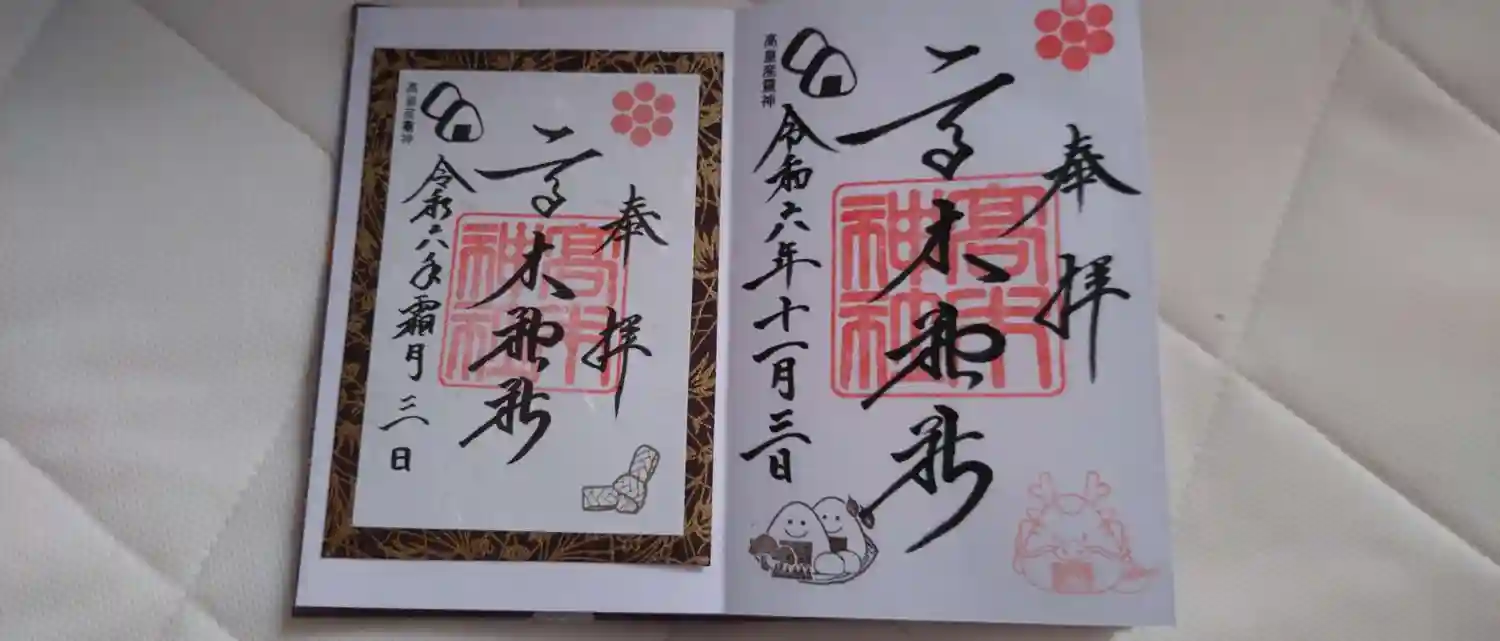 奉拝
高木神社
高木
神社
令和六年十一月三日
高皇産霊神
奉拝
高木神社
高木
神社
令和六年霜月三日
高皇産霊神